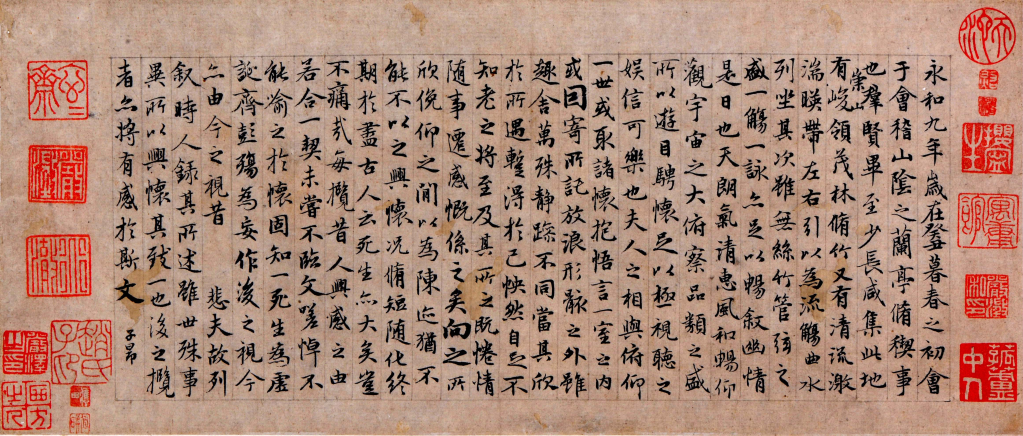 永和九年歲在癸丑暮春之初會
于會稽山陰之蘭亭脩稧事
也羣賢畢至少長咸集此地
有崇山峻領茂林脩竹又有清流激
湍暎帶左右引以為流觴曲水
列坐其次雖無絲竹管弦之
盛一觴一詠亦足以暢敘幽情
是日也天朗氣清惠風和暢仰
觀宇宙之大俯察品類之盛
所以遊目騁懷足以極視聽之
娛信可樂也夫人之相與俯仰
一世或取諸懷抱悟言一室之內
或因寄所託放浪形骸之外雖
趣舍萬殊靜躁不同當其欣
於所遇蹔得於己怏然自足不
知老之將至及其所之既惓情
隨事遷感慨係之矣向之所
欣俛仰之間以為陳迹猶不
能不以之興懷況脩短隨化終
期於盡古人云死生亦大矣豈
不痛哉每攬昔人興感之由
若合一契未嘗不臨文嗟悼不
能喻之於懷固知一死生為虛
誕齊彭殤為妄作後之視今
亦由今之視昔 悲夫故列
叙時人錄其所述雖世殊事
異所以興懷其致一也後之攬
者亦將有感於斯文
子昂
趙氏子昂